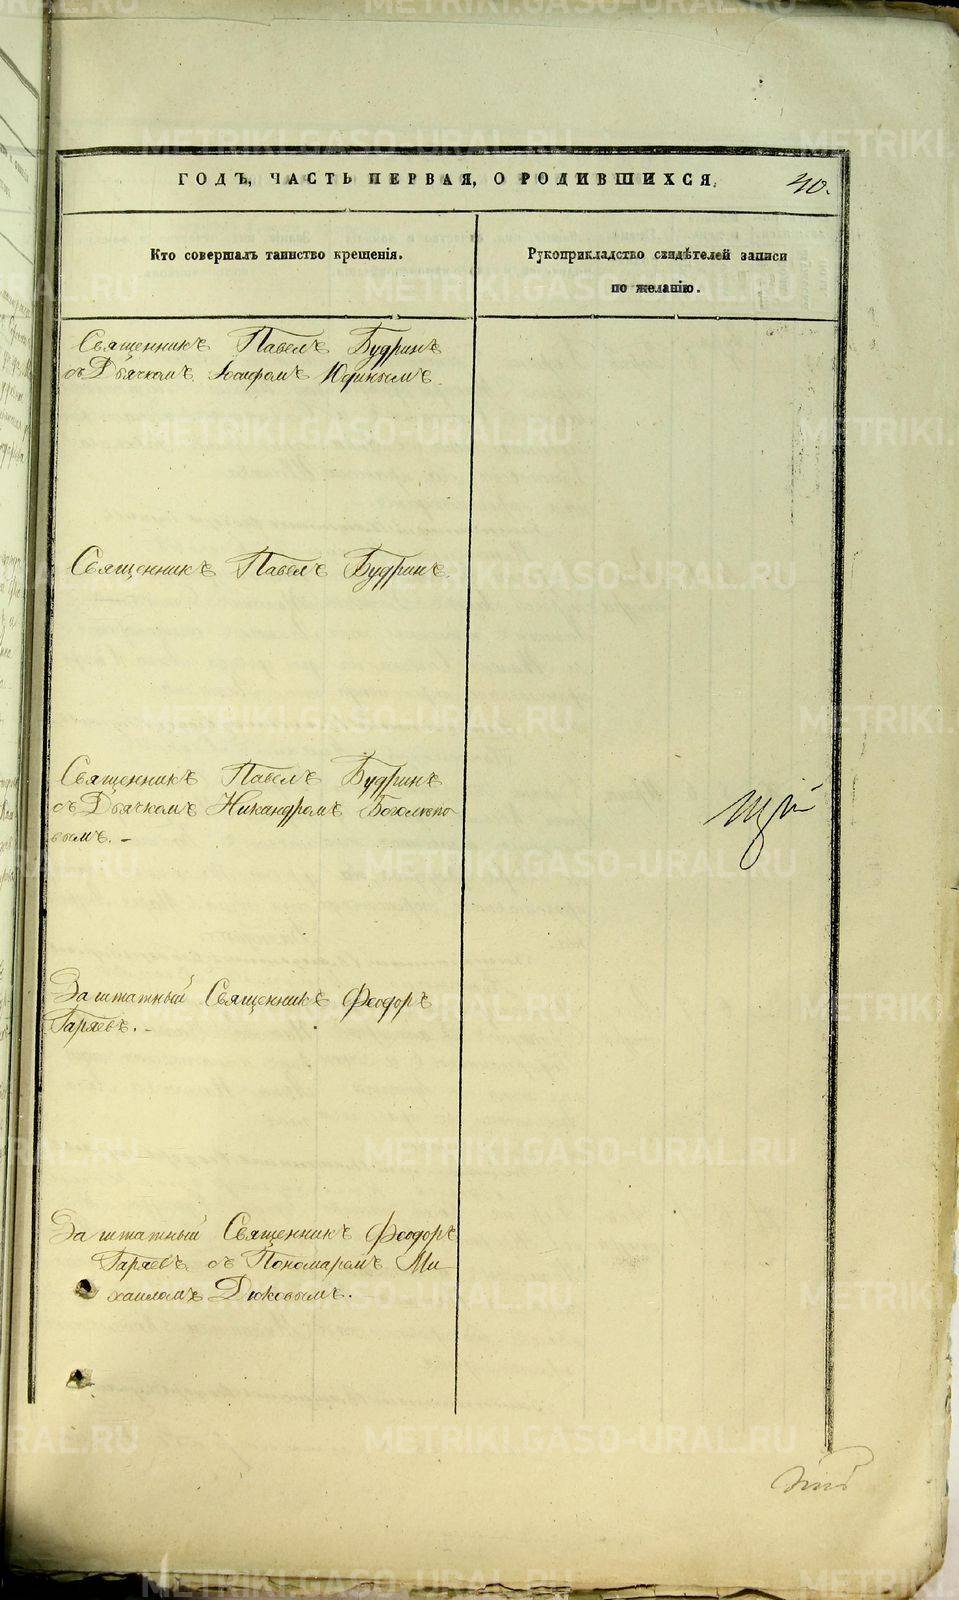 ГОДЪ, ЧАСТЬ ПЕРВАЯ, О РОДИВШИХСЯ.
40.
Кто совершалъ таинство крещенія.
Рукоприкладство свидѣтелей записи
по желанію.
Священникъ Павелъ Будринъ
съ Дьячкомъ Іосифомъ Юдинымъ.
Священникъ Павелъ Будринъ.
Священникъ Павелъ Будринъ
съ Дьячкомъ Никандромъ Боголѣпо-
вымъ. -
Заштатный Священникъ Феодоръ
Гаряевъ. -
Заштатный Священникъ Феодоръ
Гаряевъ съ Пономаремъ Ми-
хаиломъ Дюковымъ. -
METRIKI.GASO-URAL.RU